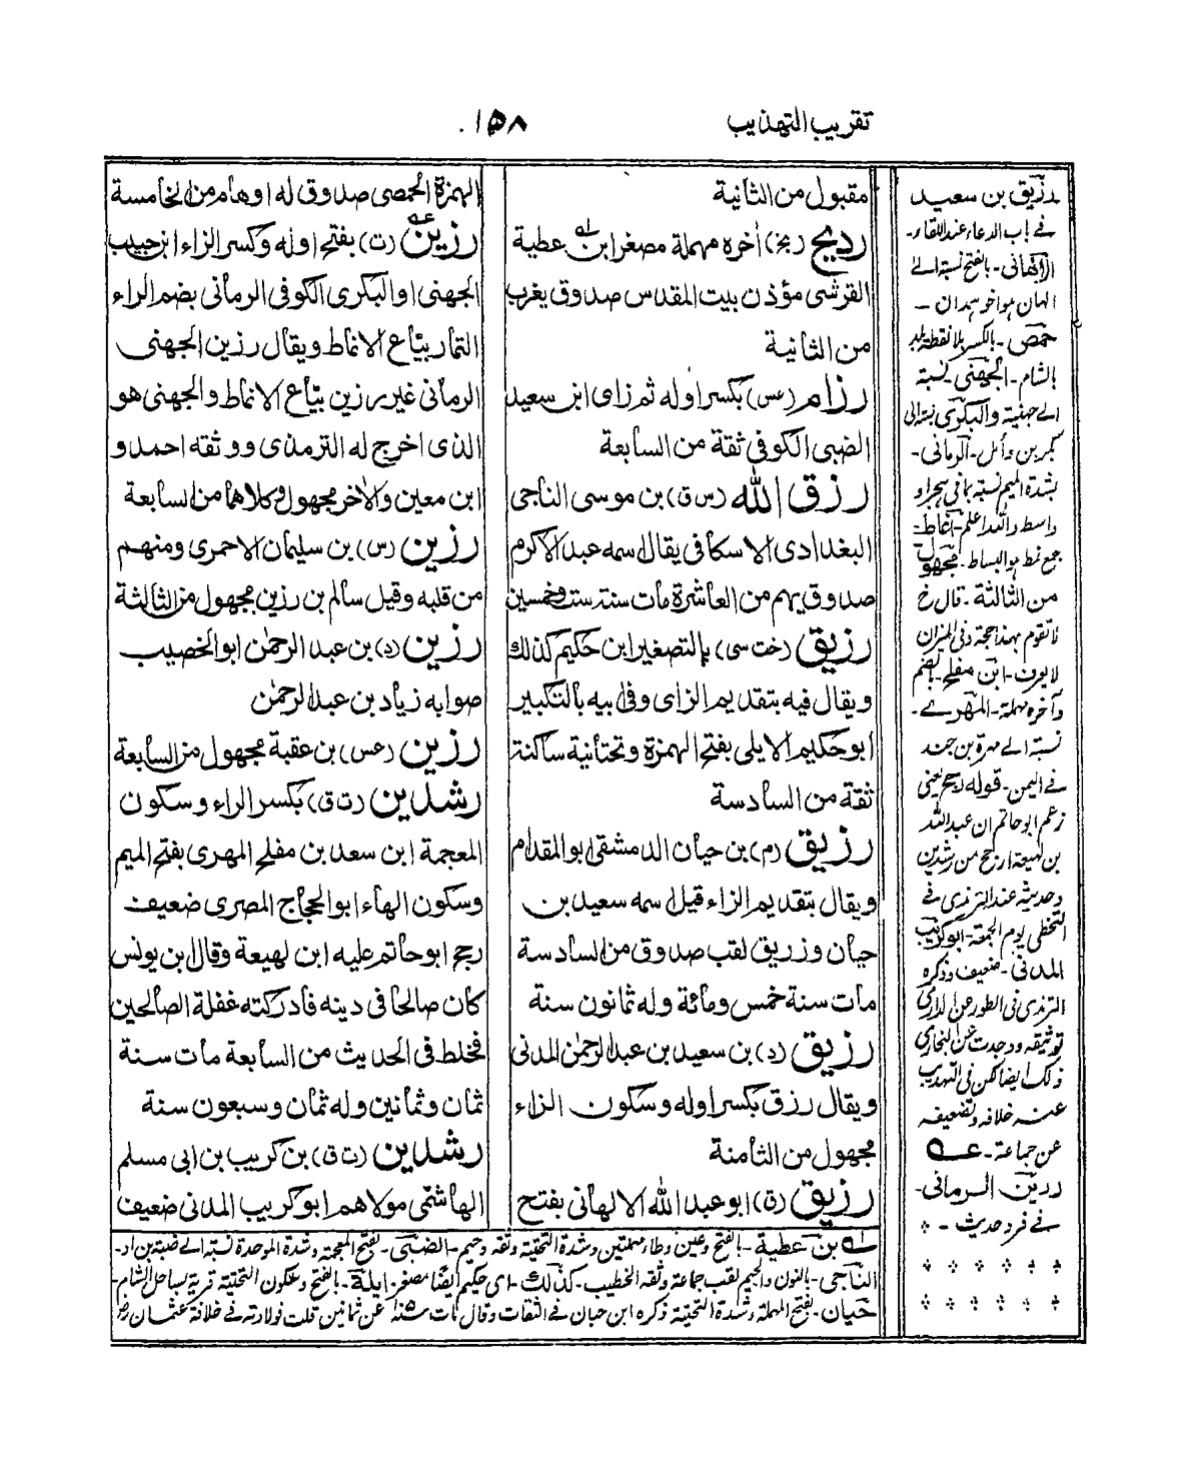 تقريب التهذيب
١٥٨
مقبول من الثانية
رديح (بخ) آخره مهملة مصغرا بن عطية
القرشى مؤذن بيت المقدس صدوق يغرب
من الثانية
رزام (عس) بكسر اوله ثم زاى ابن سعيد
الضبى الكوفى ثقة من السابعة
رزق الله (س ق) بن موسى الناجى
البغدادى الاسكافى يقال اسمه عبد الاكرم
صدوق يهم من العاشرة مات سنة ست وخمسين
رزيق (خت سى) بالتصغير ابن حكيم كذلك
ويقال فيه بتقديم الزاى وفى ابيه بالتكبير
ابو حكيم الايلى بفتح الهمزة وتحتانية ساكنة
ثقة من السادسة
رزيق (م) بن حيان الدمشقى ابو المقدام
ويقال بتقديم الزاء قيل اسمه سعيد بن
حيان وزريق لقب صدوق من السادسة
مات سنة خمس ومائة وله ثمانون سنة
رزيق (د) بن سعيد بن عبد الرحمن المدنى
ويقال رزق بكسر اوله وسكون الزاء
مجهول من الثامنة
رزيق (ق) ابو عبد الله الالهانى بفتح
الهمزة الحمصى صدوق له اوهام من الخامسة
رزين (ت) بفتح اوله وكسر الزاء ابن حبيب
الجهنى او البكرى الكوفى الرمانى بضم الراء
التمار بياع الانماط ويقال رزين الجهنى
الرمانى غير رزين بياع الانماط والجهنى هو
الذى اخرج له الترمذى ووثقه احمد و
ابن معين والآخر مجهول وكلاهما من السابعة
رزين (س) بن سليمان الاحمرى ومنهم
من قلبه وقيل سالم بن رزين مجهول من الثالثة
رزين (د) بن عبد الرحمن ابو الخصيب
صوابه زياد بن عبد الرحمن
رزين (عس) بن عقبة مجهول من السابعة
رشدين (ت ق) بكسر الراء وسكون
المعجمة ابن سعد بن مفلح المهرى بفتح الميم
وسكون الهاء ابو الحجاج المصرى ضعيف
رجح ابو حاتم عليه ابن لهيعة وقال ابن يونس
كان صالحا فى دينه فادركته غفلة الصالحين
فخلط فى الحديث من السابعة مات سنة
ثمان وثمانين وله ثمان وسبعون سنة
رشدين (ت ق) بن كريب بن ابى مسلم
الهاشمى مولاهم ابو كريب المدنى ضعيف
رزيق بن سعيد
فے باب الدعاء عند اللقاء-
الالهانى-بالفتح نسبة الے
الهان هو اخو همدان-
حمص-بالكسر بلا نقطة بلد
بالشام-الجهنى-نسبة
الے جهنية والبكرى نسبة الى
بكر بن وائل-الرمانى-
بشدة الميم نسبة
واسط والله اعلم-انماط-
جمع نمط هو البساط-مجهول
من الثالثة-قال خ
لا تقوم بهذا حجة وفى الميزان
لا يعرف-ابن مفلح-بضم
وآخره مهملة-المهرے-
نسبة الے مهرة بن
فے اليمن-قوله رجح يعنى
زعم ابو حاتم ان عبد الله
بن لهيعة ارجح من رشدين
وحديثه عند الترمذى فے
التخطى يوم الجمعة-ابو كريب
المدنى-ضعيف وذكره
الترمذى فى الطور عن الدارمى
توثيقه ووجدت عن البخارى
ذلك ايضا لكن فى التهذيب
عنه خلافه وتضعيفه
عن جماعة-عه
رزين الرمانى-
فے فرد حديث-
له بن عطية-بالفتح وعين وطاء مهملتين وشدة التحتية وثقه دحيم-الضبى-بفتح المعجمة وشدة الموحدة نسبة الے ضبة بن اد-
الناجى-بالنون والجيم لقب جماعة وثقه الخطيب-كذلك-اى حكيم ايضا مصغر-ايلة-بالفتح وسكون التحتية قرية بساحل الشام-
حيان-بفتح المهملة وشدة التحتية ذكره ابن حبان فے الثقات وقال مات عن ثمانين قلت فولادته فے خلافة عثمان رض